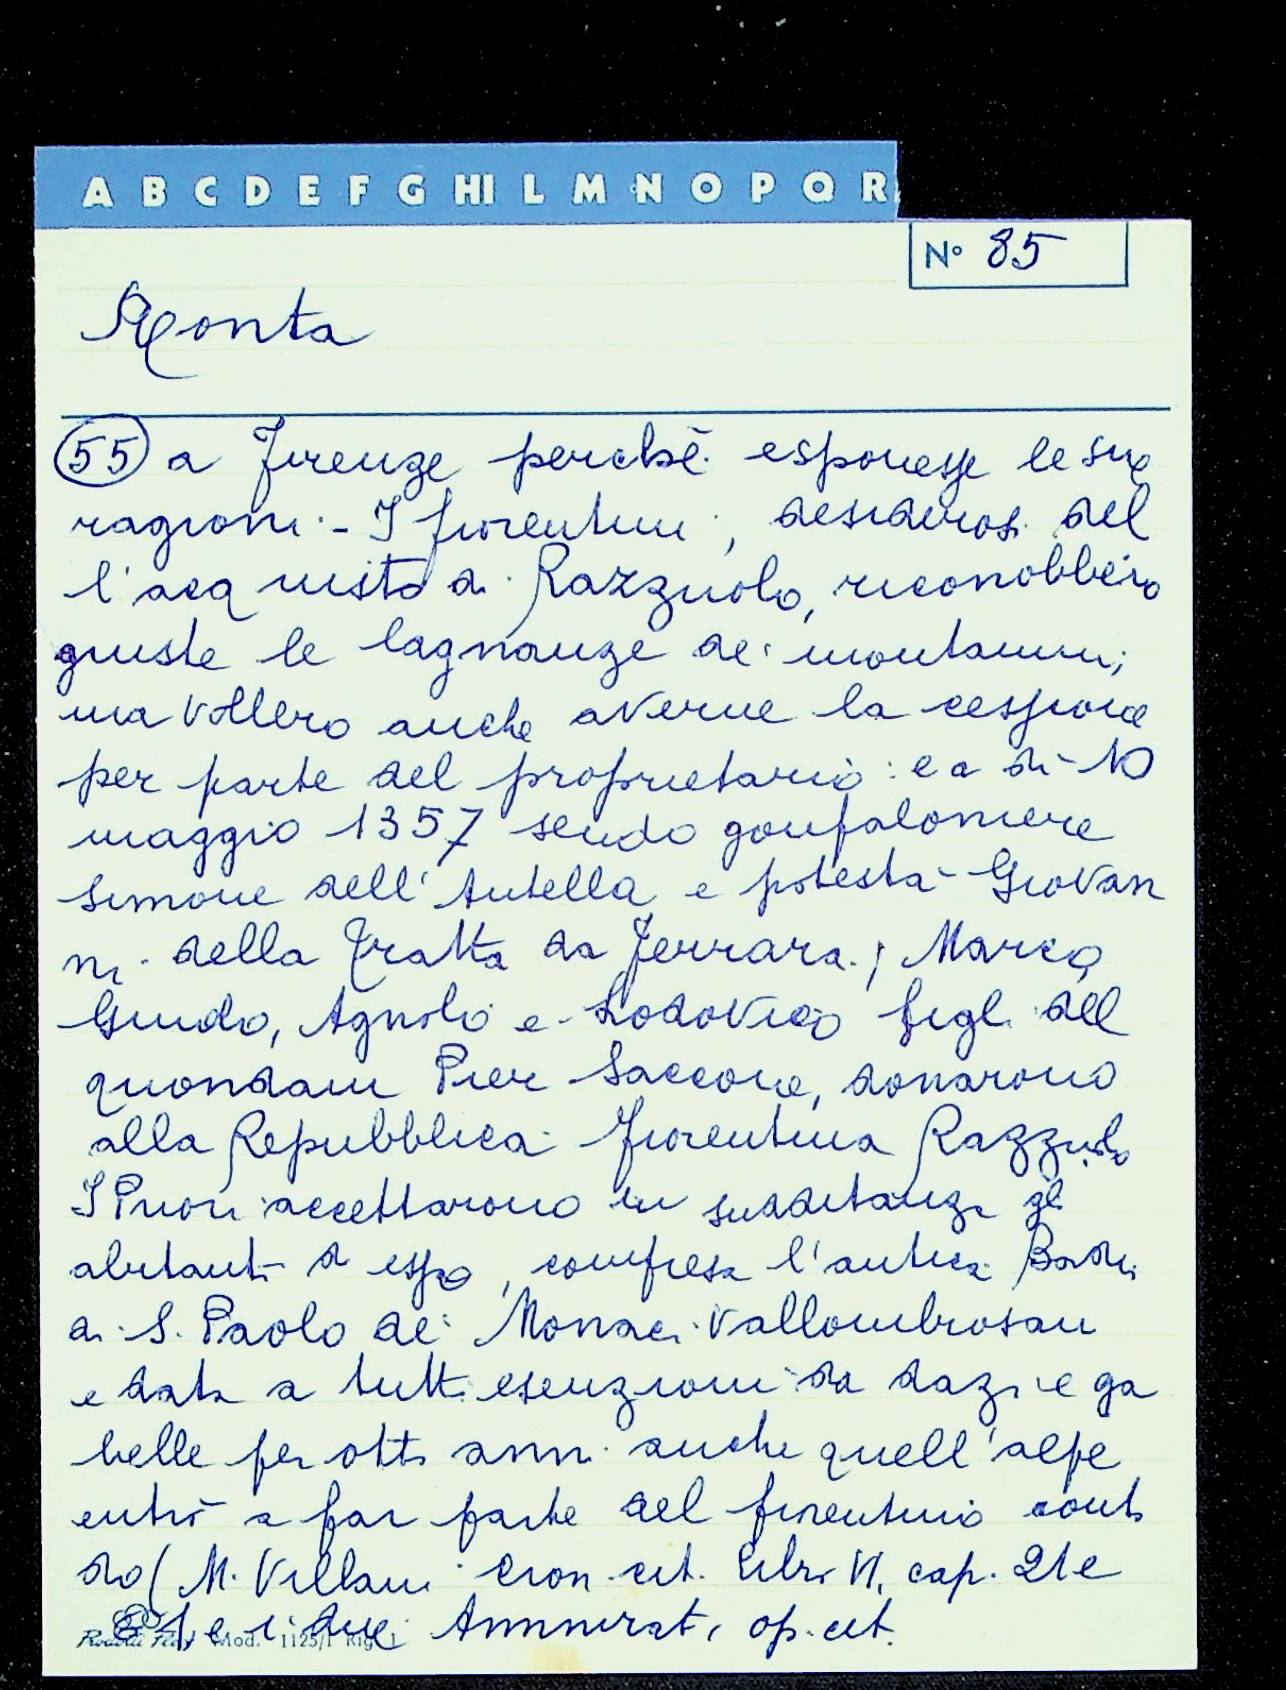 A B C D E F G HI L M N O P Q R
N° 85
Ronta
55 a Firenze perchè esponesse le sue
ragioni - I fiorentini, desiderosi del
l'acquisto di Razzuolo, riconobbero
giuste le lagnanze dei montanini;
ma vollero anche averne la cessione
per parte del proprietario: e a dì 10
maggio 1357 sendo gonfaloniere
Simone dell'Antella e potestà Giovan
ni della Tratta da Ferrara; Marco,
Guido, Agnolo e Lodovico figli del
quondam Pier Saccone, donarono
alla Repubblica Fiorentina Razzuolo
I Priori accettarono in sudditanza gli
abitanti di esso, compresa l'antica Badia
di S. Paolo dei Monaci Vallombrosani
e data a tutti esenzioni da dazi e ga
belle per otto anni anche quell'alpe
entrò a far parte del fiorentino conta
do (M. Villani Cron. cit. Libr. VI, cap. 21 e
e i due Ammirati, op. cit.
Mod. 1125/1 Rig. 1